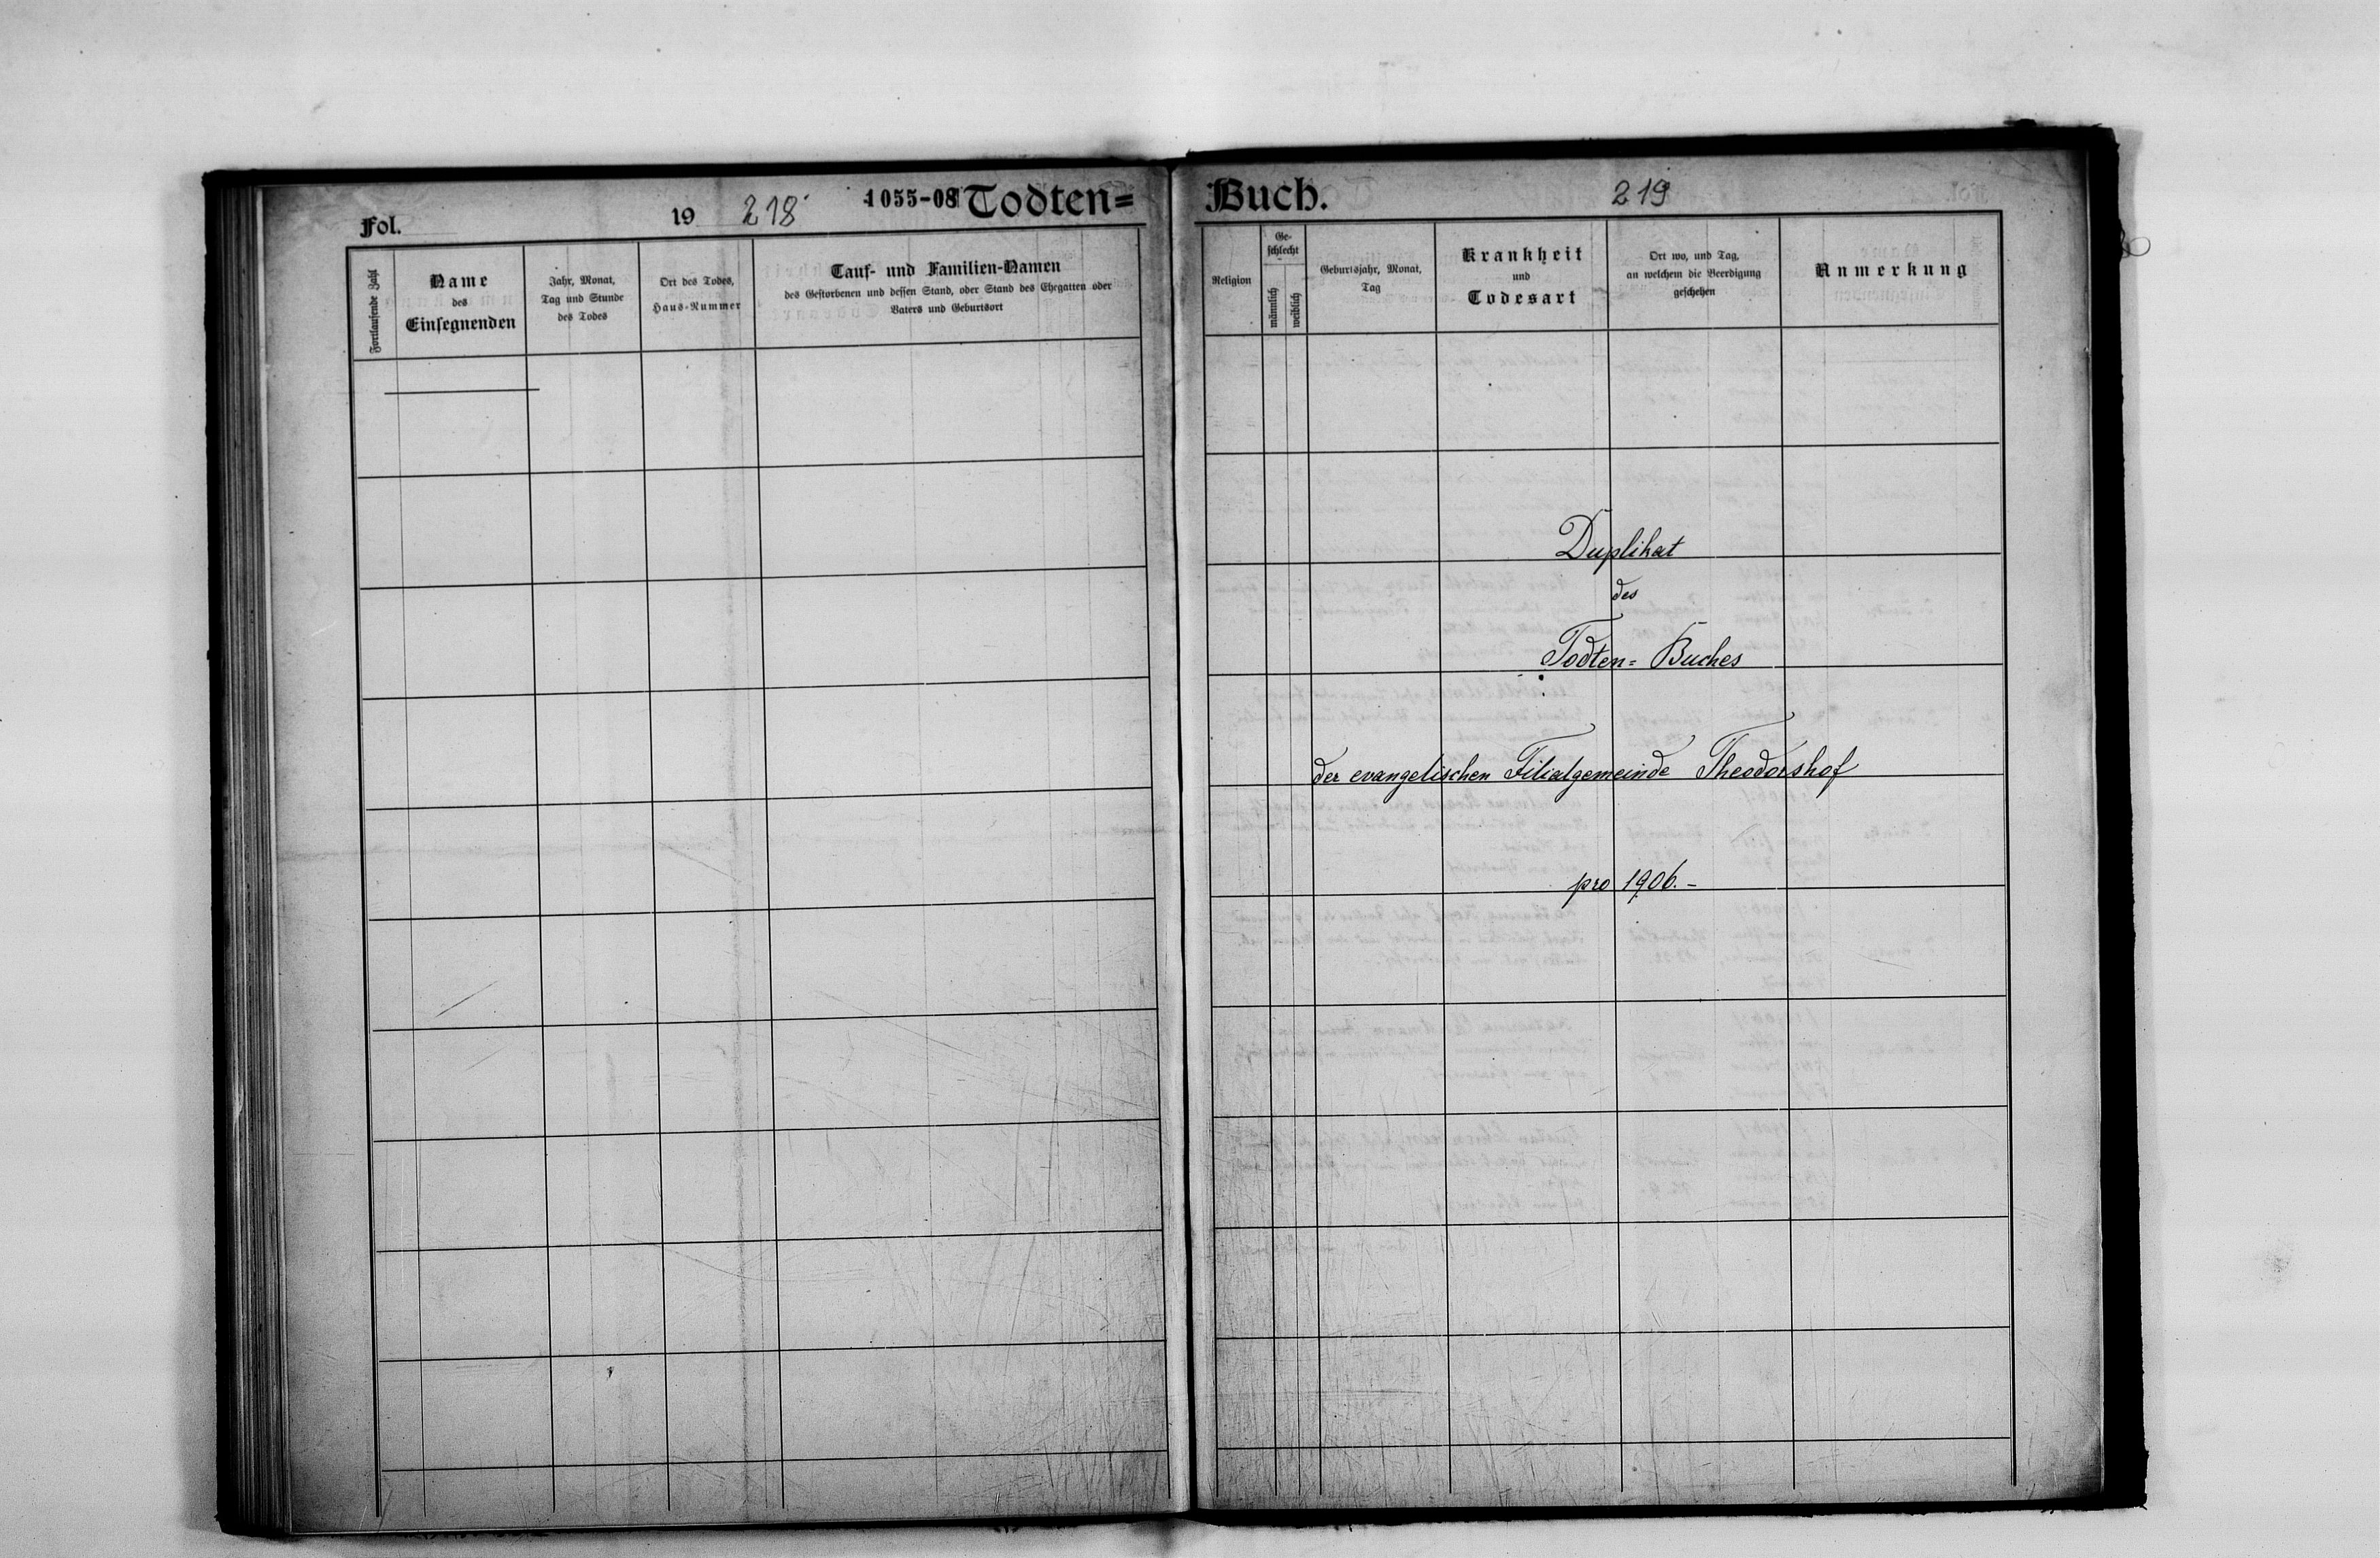 Fol.
19 218
1055-08 Todten=
Fortlaufende Zahl
Name
des
Einsegnenden
Jahr, Monat,
Tag und Stunde
des Todes
Ort des Todes,
Haus-Nummer
Tauf- und Familien-Namen
des Gestorbenen und dessen Stand, oder Stand des Ehegatten oder
Vaters und Geburtsort
Buch.
219
Religion
Ge-
schlecht
männlich
weiblich
Geburtsjahr, Monat,
Tag
Krankheit
und
Todesart
Ort wo, und Tag,
an welchem die Beerdigung
geschehen
Anmerkung
Duplikat
des
Todten= Buches
der evangelischen Filialgemeinde Theodorshof
pro 1906.-